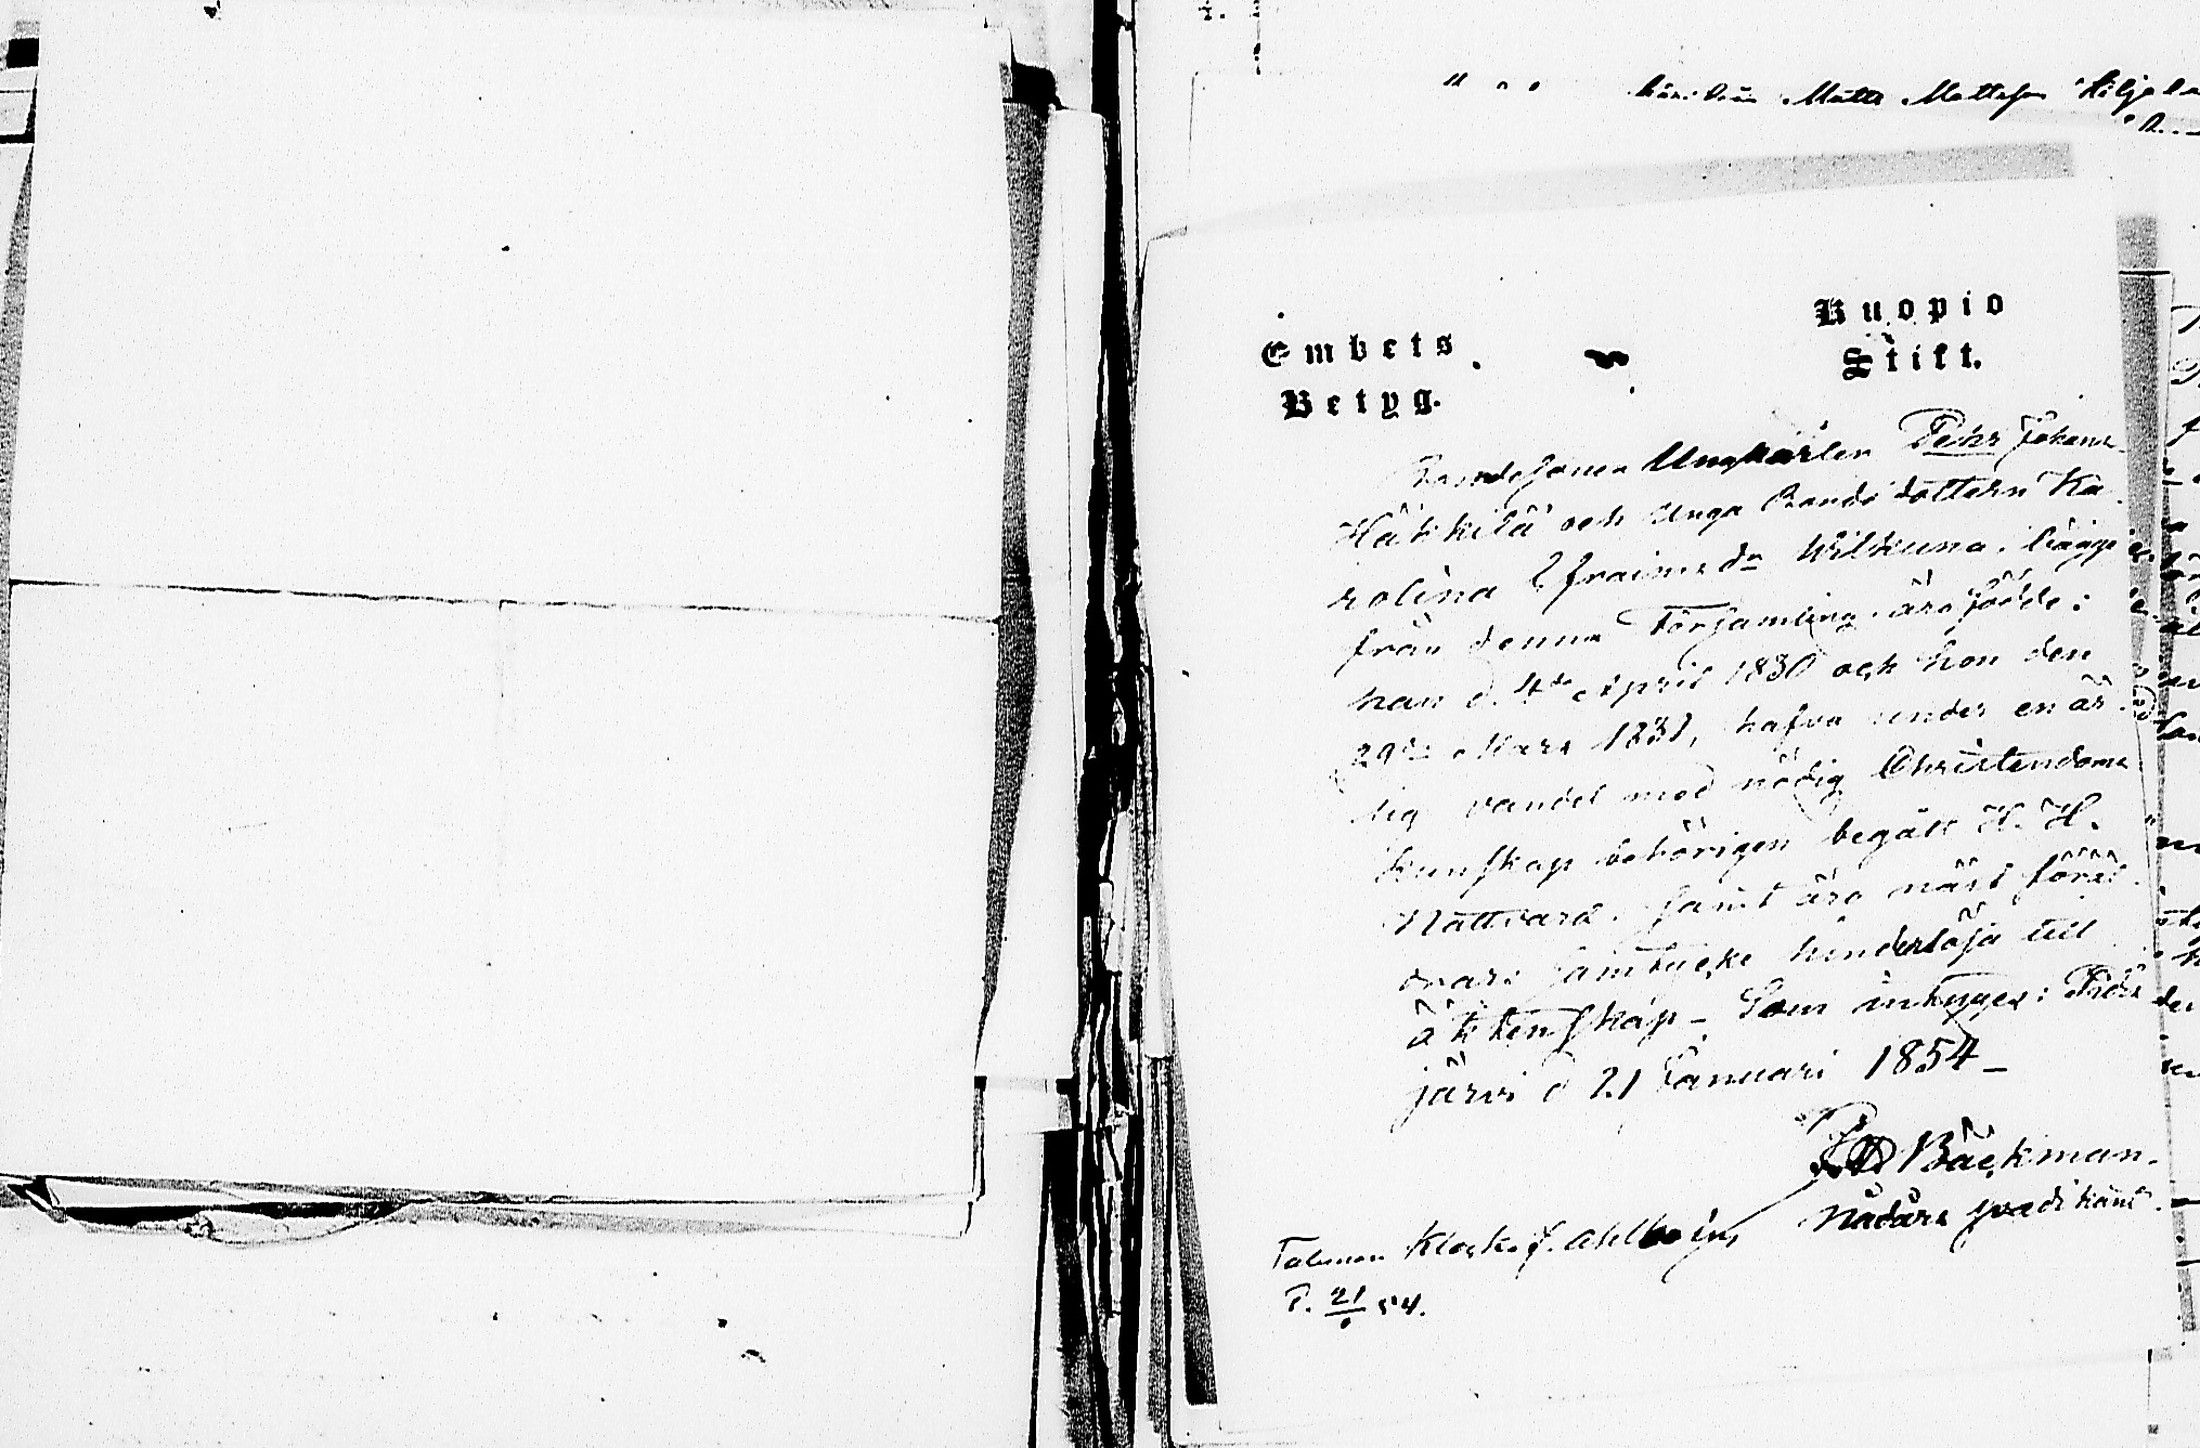 Matts Mattsson
Kuopio
Embets
Stift.
Betyg.
Bondesonen Ungkarlen Pehr Johans
Häkkilä och Unga Bondedottern Ka
rolina Efraims dr Wilkuna, bägge
från denna Församling äro födde:
han d. 4de April 1830 och hon den
29de Mars 1831, hafva under en är
lig vandel med nödig Christendoms
kunskap behörigen begått H. H.
Nattvard. samt äro näst föräl
drars samtycke hinderlösa till
äktenskap - Som intygas:
järvi d 21 Januari 1854 -
Bäckman.
Nådårs predikant.
Klock. J. Ahlbom
P. 21 54.